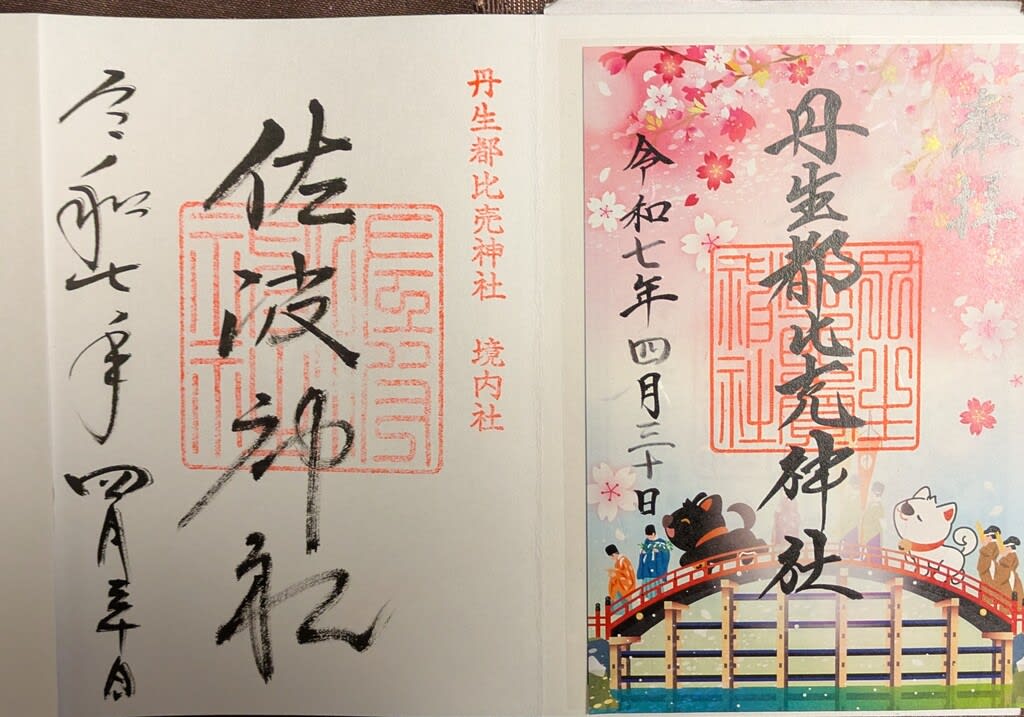 奉拝
丹生都比売神社
令和七年四月三十日
丹生都比売神社 境内社
佐波神社
令和七年四月三十日